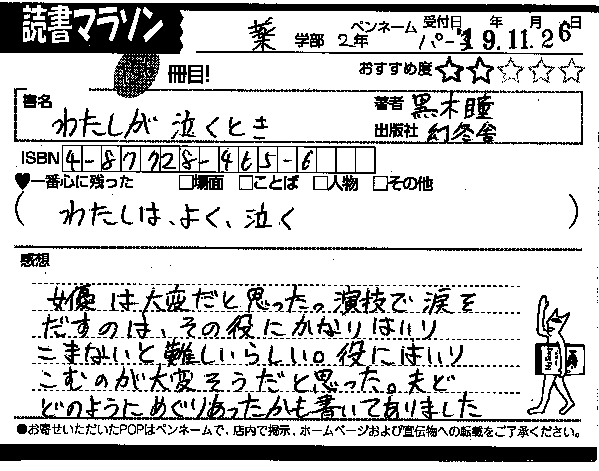 読書マラソン
冊目!
薬 学部 2年
ペンネーム
パーマ
受付日 年 月 日
19.11.26
おすすめ度 ☆☆☆☆☆
書名
わたしが泣くとき
著者 黒木瞳
出版社 幻冬舎
ISBN 4-87728-465-6
♥一番心に残った □場面 □ことば □人物 □その他
(わたしは、よく、泣く)
感想
女優は大変だと思った。演技で涙を
だすのは、その役にかなりはいり
こまないと難しいらしい。役にはいり
こむのが大変そうだと思った。夫と
どのようにめぐりあったかも書いてありました
●お寄せいただいたPOPはペンネームで、店内で掲示、ホームページおよび宣伝物への転載をご了承ください。